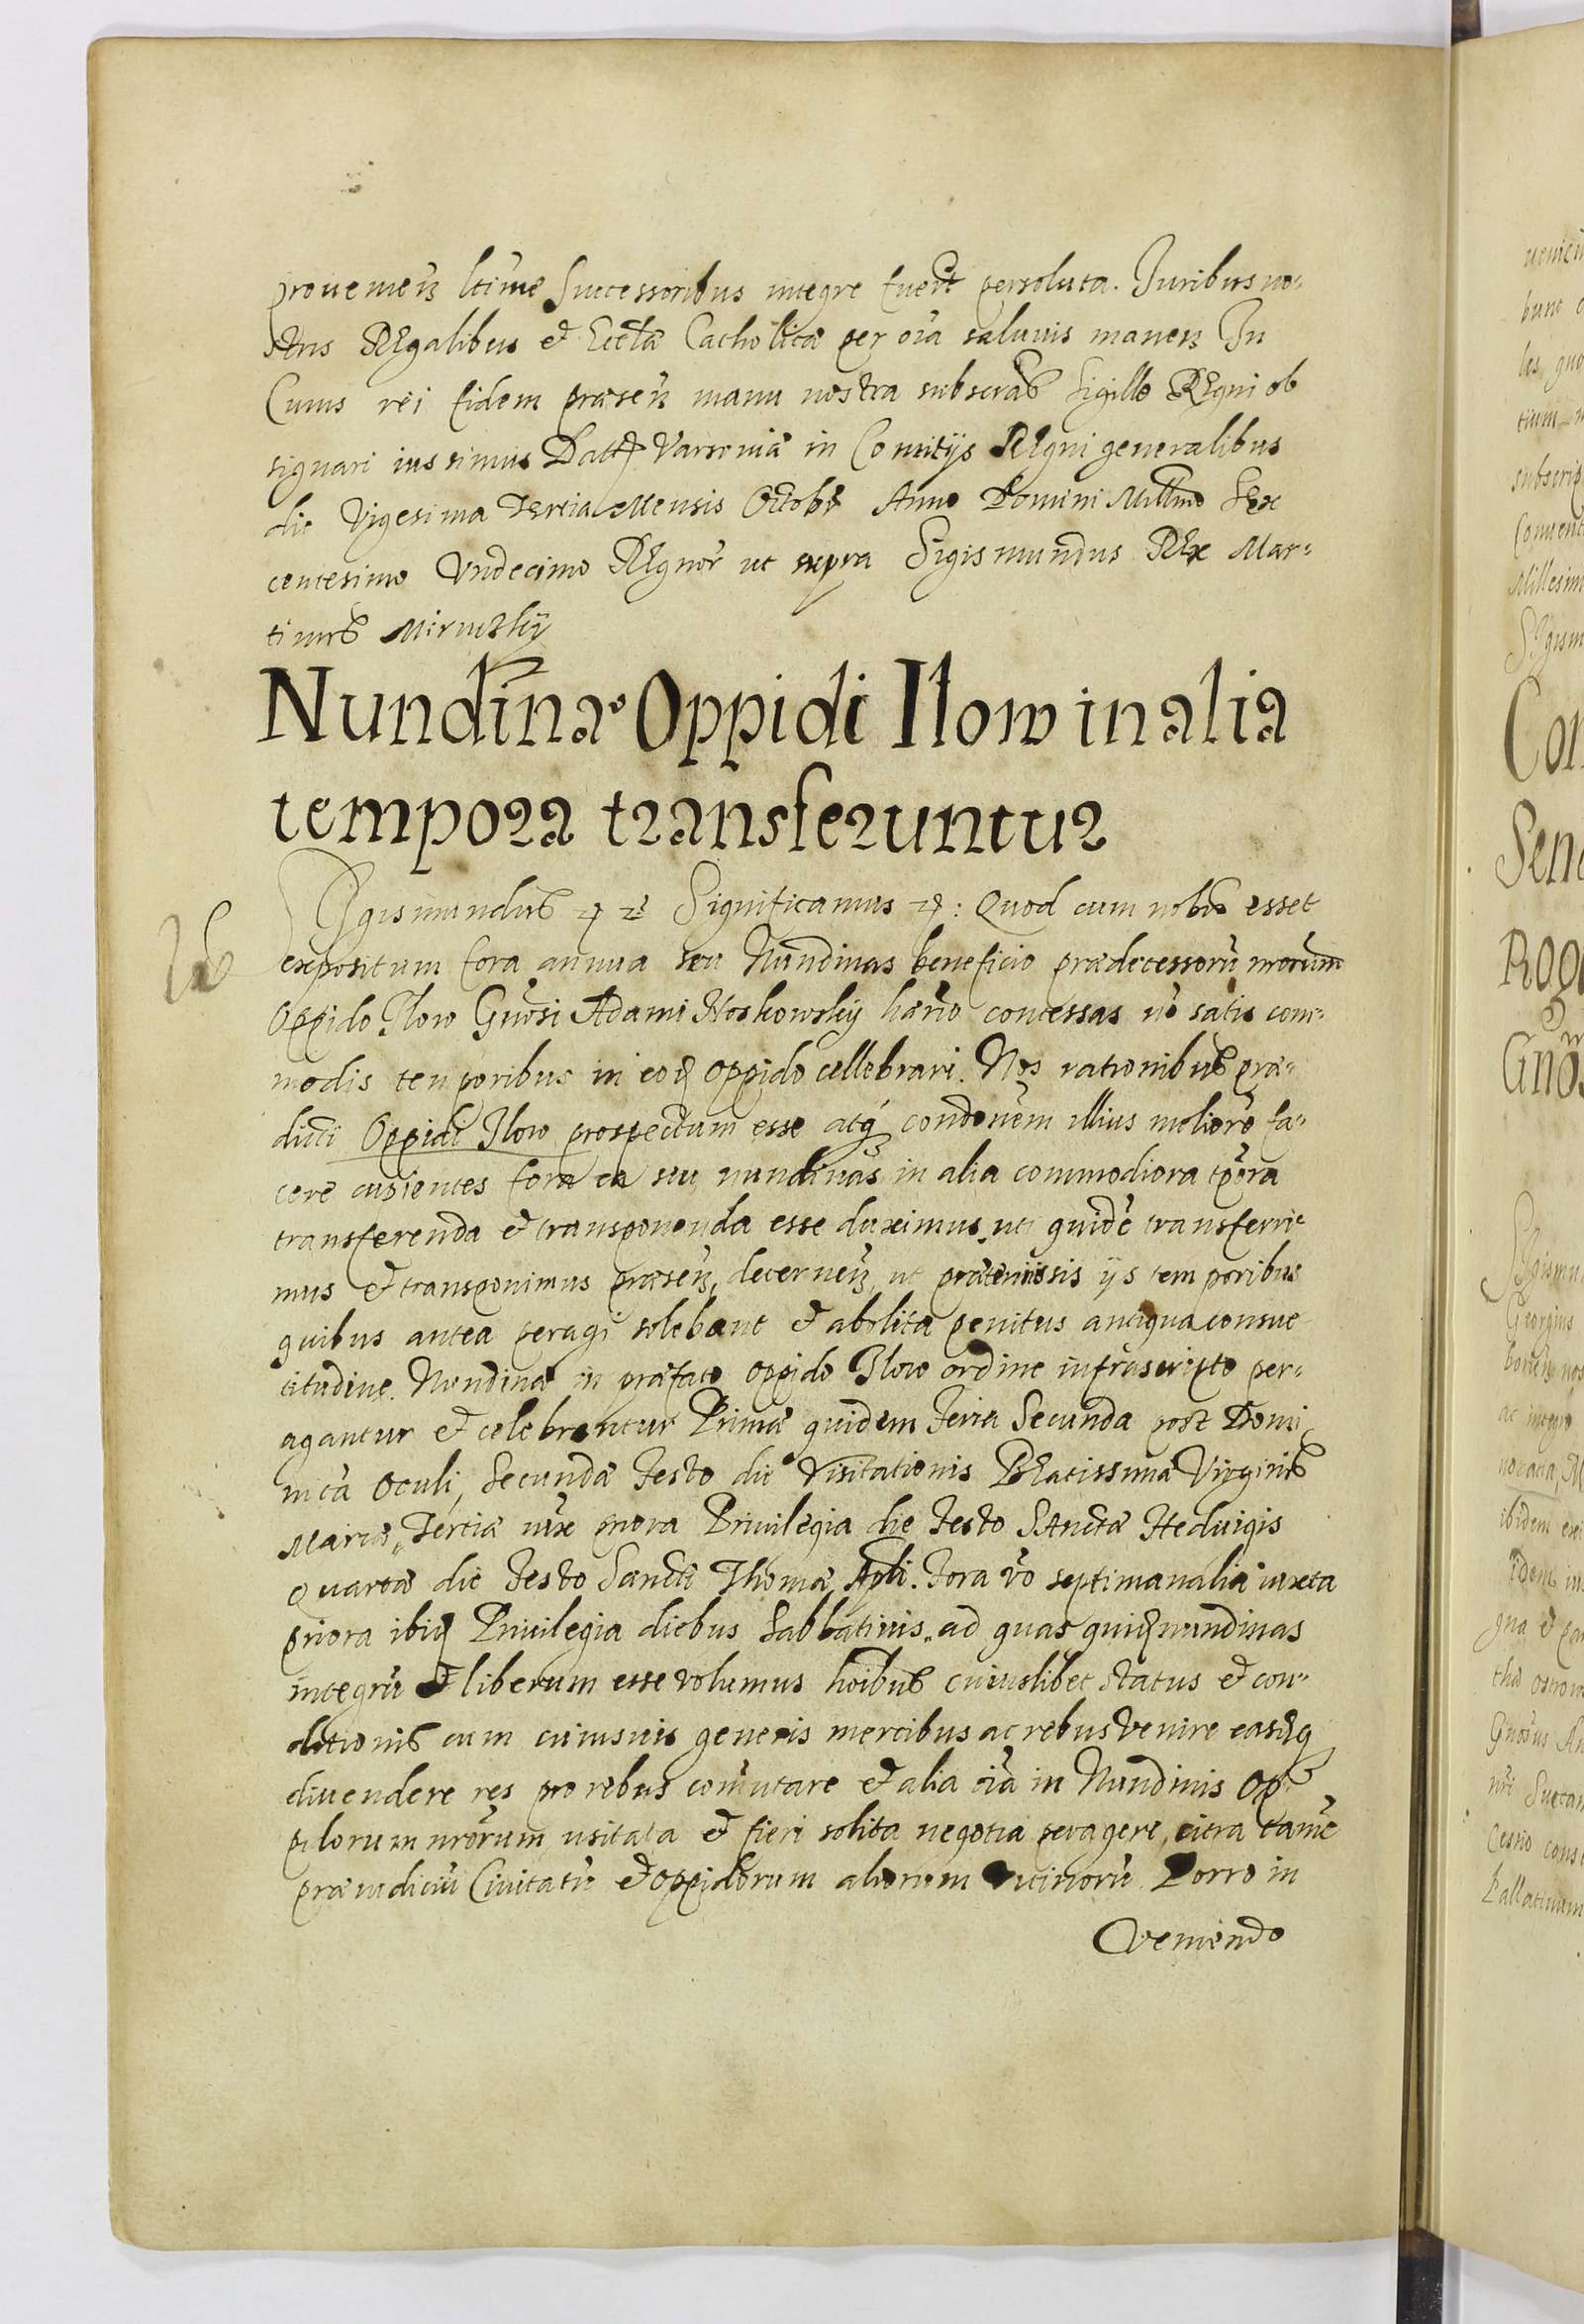 proueniens ltime Successoribus integre fuerit persoluta. Juribus no-
stris REgalibus et Eccla Catholicæ per oia saluis manen In
Cuius rei fidem præsen manu nostra subscrab Sigillo REgni ob
signari iussimus Datt Varsouiæ in Comitijs REgni generalibus
die Vigesima Tertia Mensis Octobr Anno Domini Millmo Sex
centesimo Vndecimo REgnor ut supra Sigismundus REx Mar-
tinus
Nundinæ Oppidi Ilow in alia
tempora transferuntur
SJgismundus Significamus : Quod cum nobis esset
expositum fora annua seu Nundinas beneficio prædecessorū nrorum
Oppido Ilow Gnosi Adami Noskowsky concessas nō satis com-
modis temporibus in eod oppido cellebrari. Nos rationibus præ-
dicti Oppidi Ilow prospectum esse atq condonem illius meliorē fa-
cere cupientes fora ea seu nundinas in alia commodiora tpora
transferenda et transponenda esse duximus, uti quidē transferri-
mus et transponimus præsen, decernen, ut prætermissis ijs temporibus
quibus antea peragi solebant et abolita penitus antiqua consue
titudine. Nundinæ in præfato oppido Ilow ordine infrascripto per-
agantur et celebrentur Prima quidem feria Secunda post Domi
nicā Oculi, Secundæ festo die Visitationis BEatissimæ Virginis
Mariæ, Tertiæ iux priora Priuilegia die festo SAnctæ Heduigis
Quartæ die festo Sancti Thomæ Apli. Fora vo septimanalia iuxta
priora ibid Priuilegia diebus Sabbatinis, ad quas quid nundinas
integrū et liberum esse volumus hoibus cuiuslibet status et con-
ditionis cum cuiusuis generis mercibus ac rebus venire easdq
diuendere res pro rebus comutare et alia oia in Nundinis Op-
pidorum nrorum usitata et fieri solita negotia peragere, citra tamē
præiudiciū Ciuitatū et oppidorum aliorum vicinorū Porro in
Veniendo